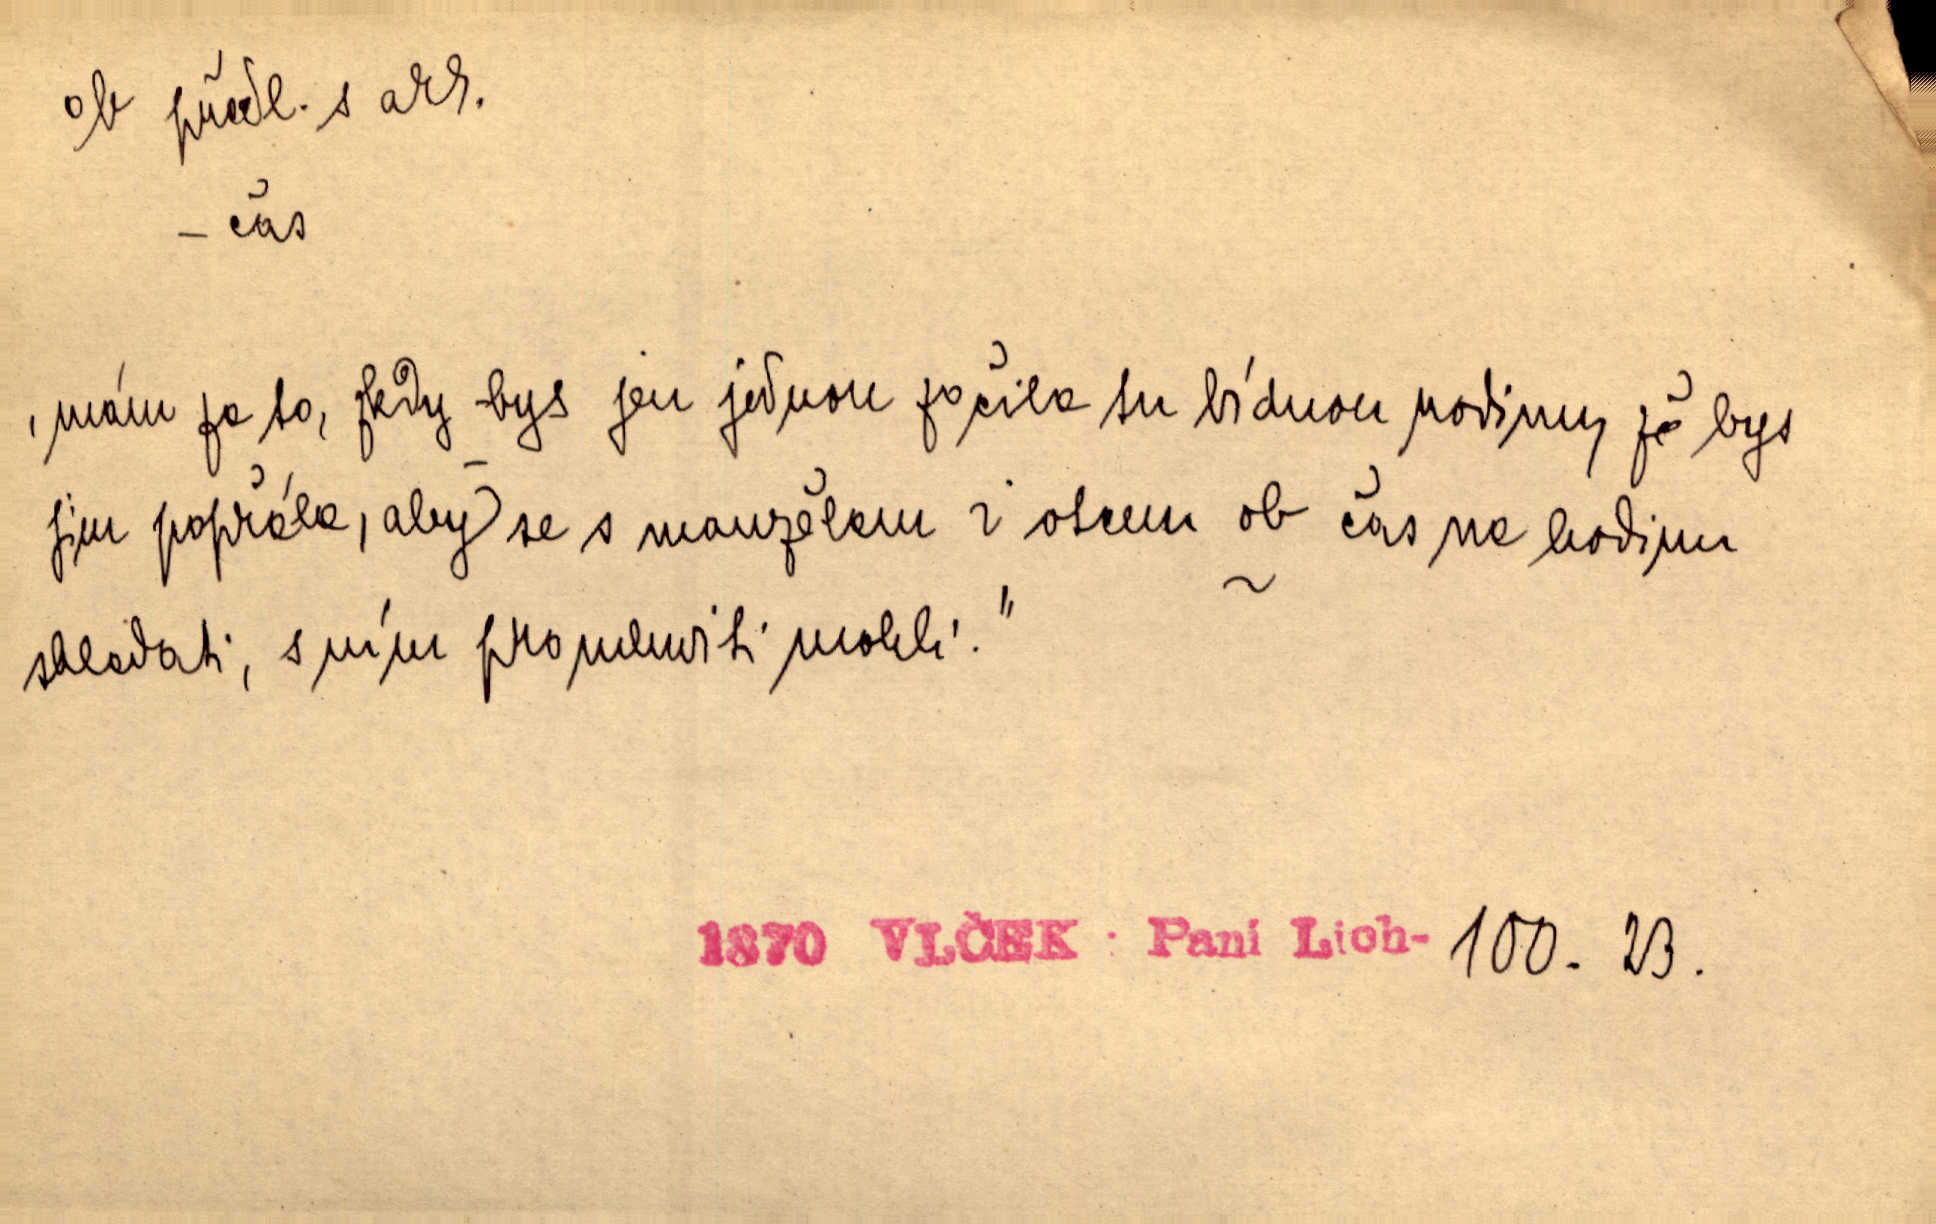 ob předl. s akk.
– čas
„mám za to, kdy bys jen jednou zočila tu bídnou rodinu, že bys
jim popřála, aby se s manželem i otcem ob čas na hodinu
shledati, s ním promluviti mohli."
1870 VLČEK : Paní Lich- 100. 23.